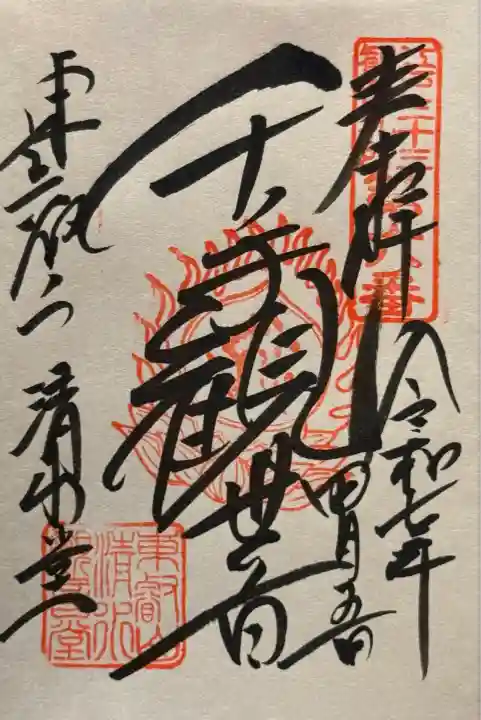 奉拝
令和七年
四月五日
千手観世音
東叡山 清水堂
東叡山
清水
観音堂